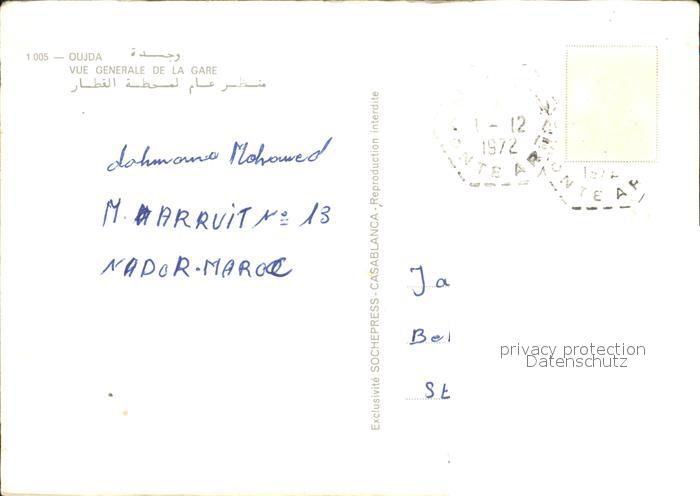 1.005 — OUJDA وجـــدة
VUE GENERALE DE LA GARE
منظـر عـام لمحطـة القطـار
dahmana Mohamed
M. HARRUIT Nº 13
NADOR-MAROC
Exclusivité SOCHEPRESS - CASABLANCA - Reproduction interdite
1 - 12
1972
ONTE AR
ONTE AR
Ja
Bel
St
privacy protection
Datenschutz